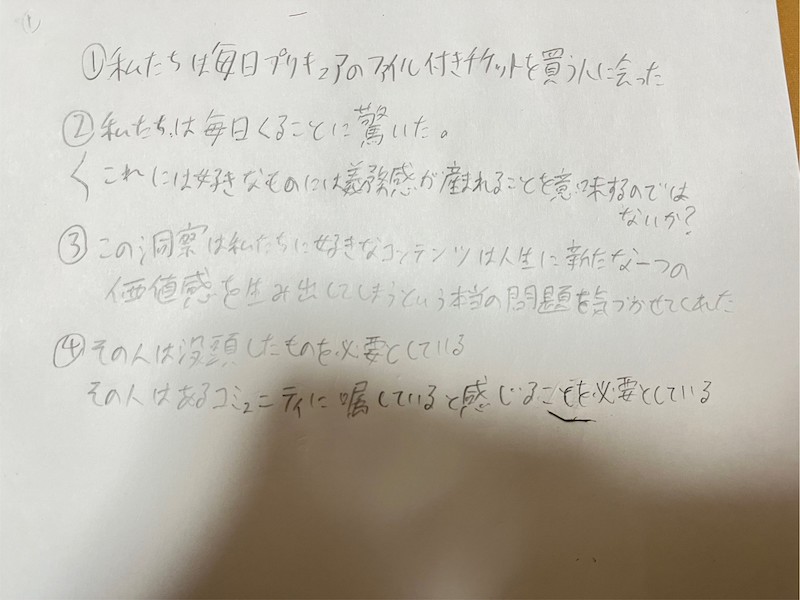 ①
①私たちは毎日プリキュアのファイル付きチケットを買う人に会った
②私たちは毎日くることに驚いた。
くこれには好きなものには義務感が産まれることを意味するのでは
ないか?
③この洞察は私たちに好きなコンテンツは人生に新たな一つの
価値感を生み出してしまうという本当の問題を気づかせてくれた
④その人は没頭したものを必要としている
その人はあるコミュニティに嘱していると感じることを必要としている